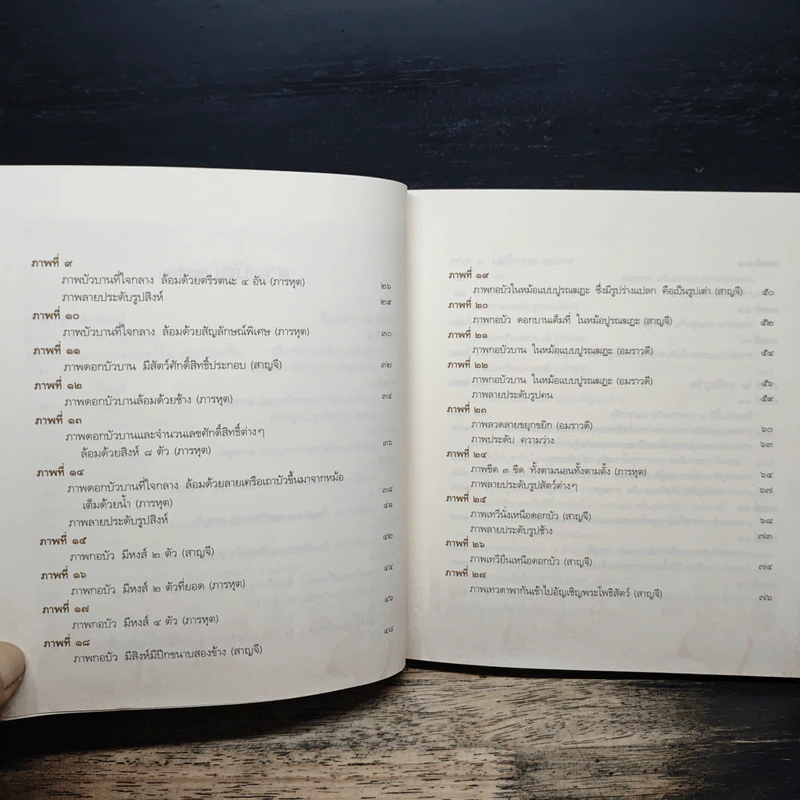 ภาพที่ ๙
ภาพบัวบานที่ใจกลาง ล้อมด้วยตรีรตนะ ๔ อัน (ภารหุต) ๒๖
ภาพลายประดับรูปสิงห์ ๒๙
ภาพที่ ๑๐
ภาพบัวบานที่ใจกลาง ล้อมด้วยสัญลักษณ์พิเศษ (ภารหุต) ๓๐
ภาพที่ ๑๑
ภาพดอกบัวบาน มีสัตว์ศักดิ์สิทธิ์ประกอบ (สาญจี) ๓๒
ภาพที่ ๑๒
ภาพดอกบัวบานล้อมด้วยช้าง (ภารหุต) ๓๔
ภาพที่ ๑๓
ภาพดอกบัวบานและจำนวนเลขศักดิ์สิทธิ์ต่างๆ
ล้อมด้วยสิงห์ ๘ ตัว (ภารหุต) ๓๖
ภาพที่ ๑๔
ภาพดอกบัวบานที่ใจกลาง ล้อมด้วยลายเครือเถาบัวขึ้นมาจากหม้อ
เต็มด้วยน้ำ (ภารหุต) ๓๘
ภาพลายประดับรูปสิงห์ ๔๑
ภาพที่ ๑๕
ภาพกอบัว มีหงส์ ๒ ตัว (สาญจี) ๔๒
ภาพที่ ๑๖
ภาพกอบัว มีหงส์ ๒ ตัวที่ยอด (ภารหุต) ๔๔
ภาพที่ ๑๗
ภาพกอบัว มีหงส์ ๔ ตัว (ภารหุต) ๔๖
ภาพที่ ๑๘
ภาพกอบัว มีสิงห์มีปีกขนาบสองข้าง (สาญจี) ๔๘
ภาพที่ ๑๙
ภาพกอบัวในหม้อแบบปูรณฆฏะ ซึ่งมีรูปร่างแปลก คือเป็นรูปเต่า (สาญจี) ๕๐
ภาพที่ ๒๐
ภาพกอบัว ดอกบานเต็มที่ ในหม้อปูรณฆฏะ (สาญจี) ๕๒
ภาพที่ ๒๑
ภาพกอบัวบาน ในหม้อแบบปูรณฆฏะ (อมราวดี) ๕๔
ภาพที่ ๒๒
ภาพกอบัวบาน ในหม้อแบบปูรณฆฏะ (อมราวดี) ๕๖
ภาพลายประดับรูปคน ๕๙
ภาพที่ ๒๓
ภาพลวดลายขยุกขยิก (อมราวดี) ๖๐
ภาพประดับ ความว่าง ๖๓
ภาพที่ ๒๔
ภาพขีด ๓ ขีด ทั้งตามนอนทั้งตามตั้ง (ภารหุต) ๖๔
ภาพลายประดับรูปสัตว์ต่างๆ ๖๗
ภาพที่ ๒๕
ภาพเทวีนั่งเหนือดอกบัว (สาญจี) ๖๘
ภาพลายประดับรูปช้าง ๗๓
ภาพที่ ๒๖
ภาพเทวียืนเหนือดอกบัว (สาญจี) ๗๔
ภาพที่ ๒๗
ภาพเทวดาพากันเข้าไปอัญเชิญพระโพธิสัตว์ (สาญจี) ๗๖